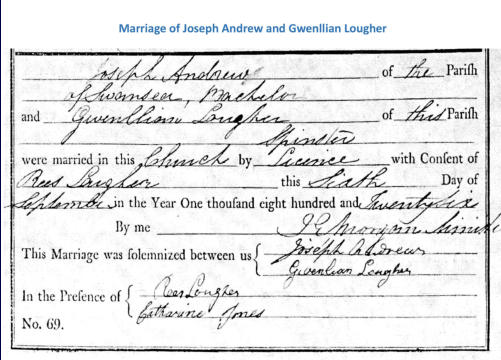 Marriage of Joseph Andrew and Gwenllian Lougher
Joseph Andrew of the Parish
of Swansea, Bachelor
and Gwenllian Lougher of this Parish
Spinster
were married in this Church by Licence with Consent of
Rees Lougher this Sixth Day of
September in the Year One thousand eight hundred and Twenty six
By me J E Morgan
This Marriage was solemnized between us { Joseph Andrew
Gwenllian Lougher
In the Presence of { Rees Lougher
Catharine Jones
No. 69.